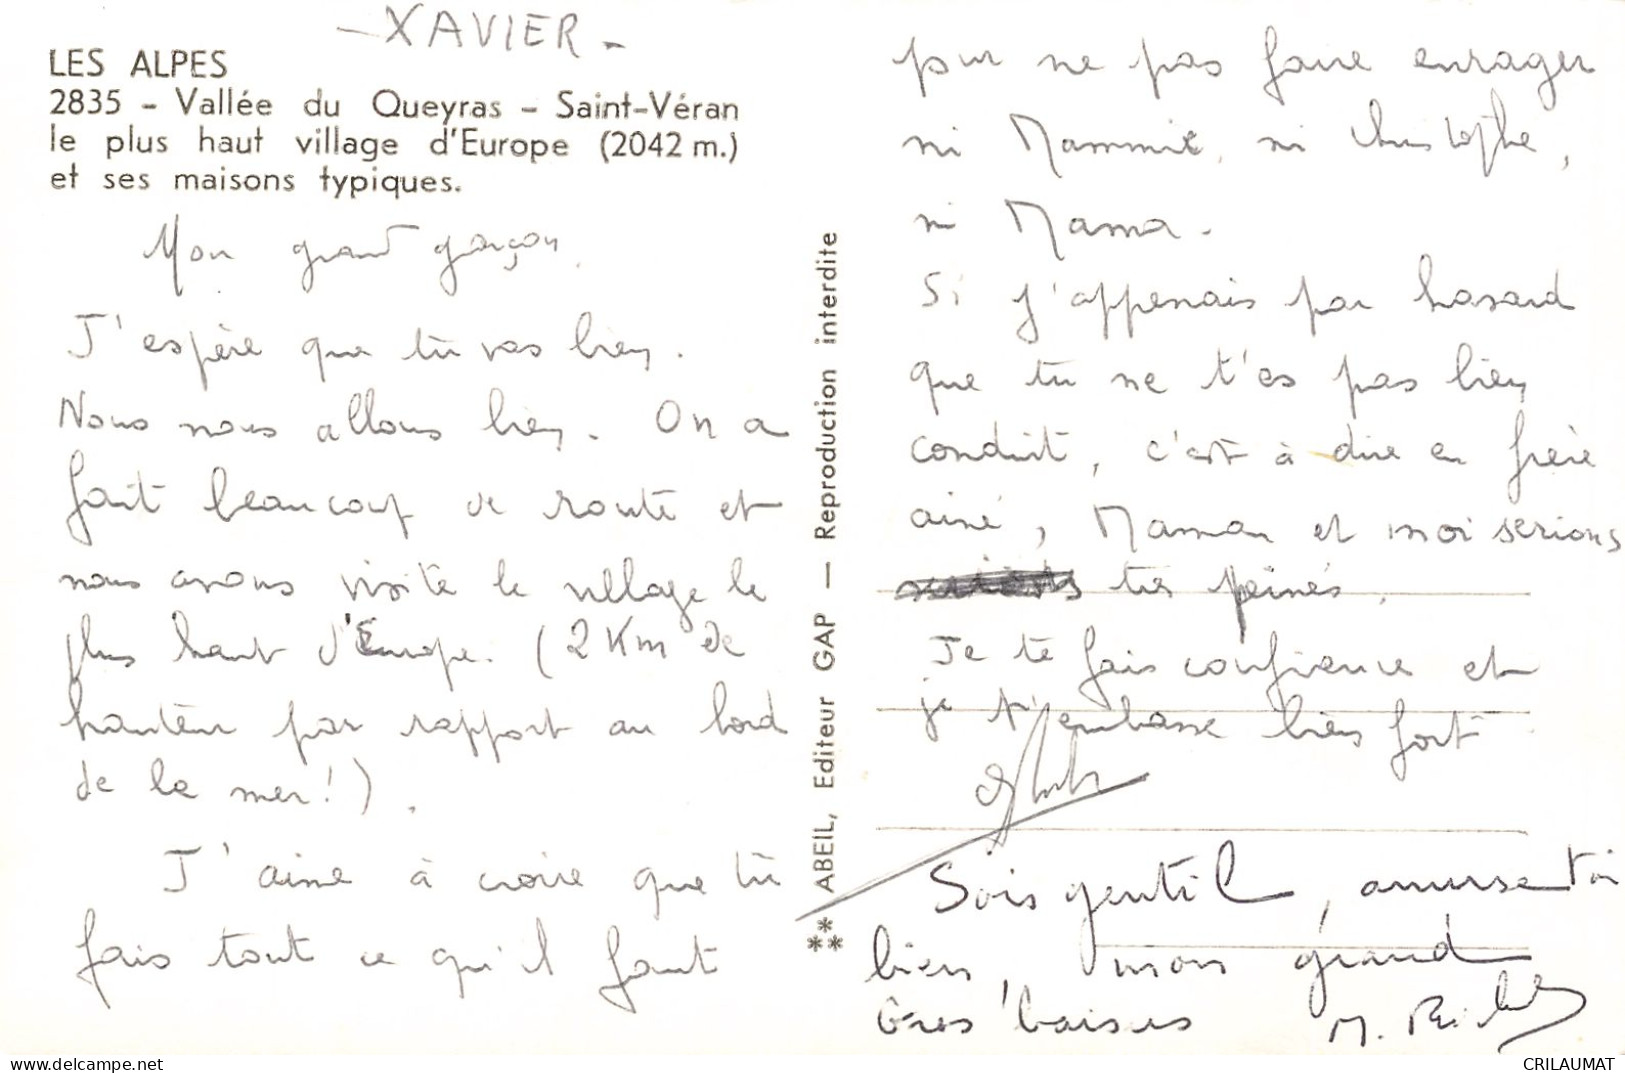 - XAVIER -
LES ALPES
2835 - Vallée du Queyras - Saint-Véran
le plus haut village d'Europe (2042 m.)
et ses maisons typiques.
Mon grand garçon,
J'espère que tu vas bien.
Nous nous allons bien. On a
fait beaucoup de route et
nous avons visité le village le
plus haut d'Europe. (2 Km de
hauteur par rapport au bord
de la mer!).
J'aime à croire que tu
fais tout ce qu'il faut
ABEIL, Editeur GAP — Reproduction interdite
pur ne pas faire enrager
ni Mammie, ni Christophe,
ni Mama.
Si j'apprenais par hasard
que tu ne t'es pas bien
conduit, c'est à dire en frère
ainé, Maman et moi serions
très peinés.
Je te fais confiance et
je t'embrasse bien fort
Sois gentil, amuse toi
bien, mon grand
Gros baisers M.
CRILAUMAT